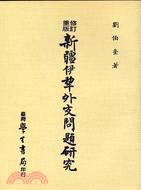 劉伯奎著
修訂重版
新疆伊犂外交問題研究
臺灣學生書局印行